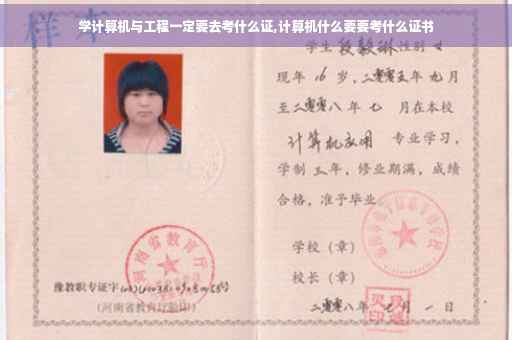 学计算机与工程一定要去考什么证,计算机什么要要考什么证书
样本
学生 段毅琳 性别 女
现年 16 岁，二零零五年 九月
至二零零八年 七 月在本校
计算机应用 专业学习，
学制 三 年，修业期满，成绩
合格，准予毕业
学校（章）
校长（章）
二零零八年 七月 一 日
河南省教育厅
豫教职专证字
(河南省教育厅验印)